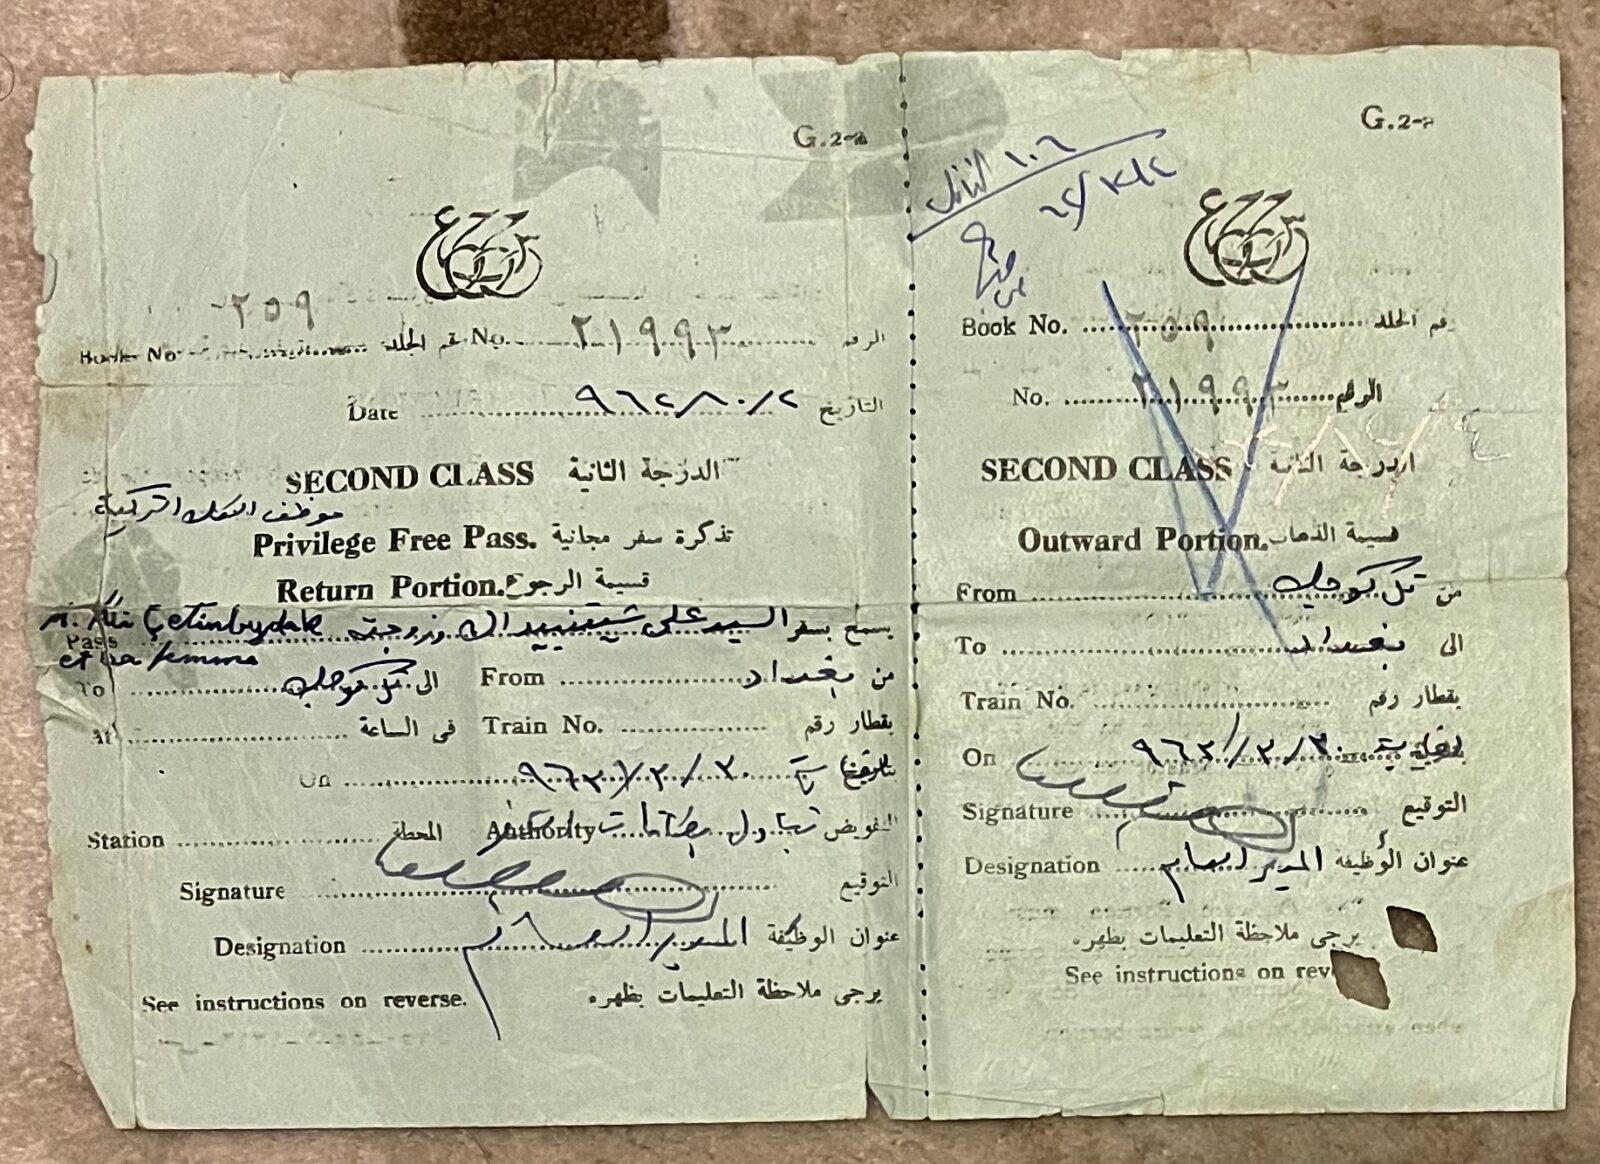 G.2-2
٢٥٩
Book No. رقم الجلد No. ٢١٩٩٣ الرقم
Date ٩٦٢/١٠/٢ التاريخ
SECOND CLASS الدرجة الثانية
موظف السكك التركية
Privilege Free Pass. تذكرة سفر مجانية
Return Portion. قسيمة الرجوع
Pass M. Ali Çetinbudak السيد علي وزوجته يسمح بسفر
et sa femme
To تل كوجك الى From بغداد من
At في الساعة Train No. بقطار رقم
On ٩٦٣/٣/٣٠ بتاريخ
Station المحطة Authority التفويض
Signature التوقيع
Designation المدير العام عنوان الوظيفة
See instructions on reverse. يرجى ملاحظة التعليمات بظهره
G.2-2
١٠٦
Book No. ٢٥٩ رقم الجلد
No. ٢١٩٩٣ الرقم
SECOND CLASS الدرجة الثانية
Outward Portion. قسيمة الذهاب
From تل كوجك من
To بغداد الى
Train No. بقطار رقم
On ٩٦٣/٣/٣٠ لغاية
Signature التوقيع
Designation المدير العام عنوان الوظيفة
يرجى ملاحظة التعليمات بظهره
See instructions on rev